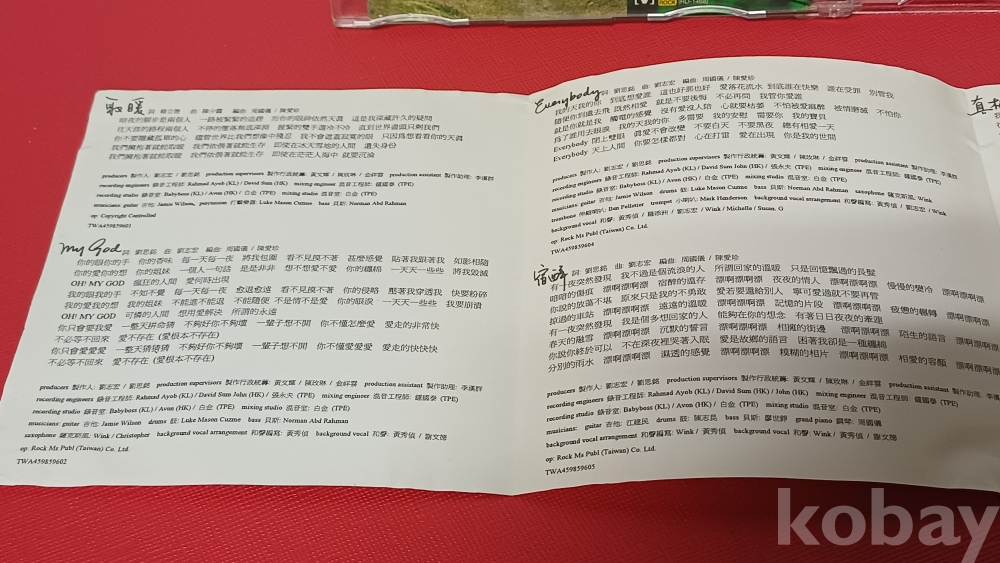 取暖 詞
暗夜的腳步是兩個人 一路被緊緊的追趕 而你的眼睜依然天真 這是我深藏許久的疑問
往天涯的路程兩個人 不停的墜落無底深淵 握緊的雙手還冷不冷 直到世界盡頭只剩我們
你不要隱藏孤單的心 儘管世界比我們想像中殘忍 我不會遮蓋寂寞的眼 只因為想看看你的天真
我們擁抱著就能取暖 我們依偎著就能生存 即使在冰天雪地的人間 遺失身份
我們擁抱著就能取暖 我們依偎著就能生存 即使在茫茫人海中 就要沉淪
recording engineers 錄音工程師: Rahmad Ayob (KL) / David Sum (HK) mixing engineer 混音工程師: (TPE)
recording studio 錄音室: Babyboss (KL) / Avon (HK) / 白金 (TPE) mixing studio 混音室: 白金 (TPE)
musicians: guitar 吉他: Jamie Wilson, percussion 打擊樂器: Luke Mason Cuzme bass 貝斯: Norman Abd Rahman
op: Copyright Controlled
TWA459859601
My God 詞: 劉思銘 曲: 劉志宏 編曲: 周國儀 / 陳愛珍
你的眼你的手 你的香味 每一天每一夜 將我包圍 看不見摸不著 甚麼感覺 貼著我跟著我 如影相隨
你的愛你的想 你的姐妹 一個人一句話 是是非非 想不想愛不愛 你的纏綿 一天天一些些 將我毀滅
OH! MY GOD 瘋狂的人間 愛何時出現
我的眼我的手 不如不覺 每一天每一夜 愈退愈遠 看不見摸不著 你的侵略 壓著我穿透我 快要粉碎
我的愛我的想 我的姐妹 不能進不能退 不能隨便 不是情不是愛 你的眼淚 一天天一些些 我要崩潰
OH! MY GOD 可憐的人間 想用愛解決 所謂的永遠
你只會要我愛 一整天拚命猜 不夠好你不夠壞 一輩子想不開 你不懂怎麼愛 愛走的非常快
不必等不回來 愛不存在 (愛根本不存在)
你只會愛愛愛 一整天猜猜猜 不夠好你不夠壞 一輩子想不開 你不懂愛愛愛 愛走的快快快
不必等不回來 愛不存在 (愛根本不存在)
producers 製作人: 劉志宏 / 劉思銘 production supervisors 製作行政統籌: 黃文輝 / 陳玫琳 / 金祥雲 production assistant 製作助理: 李漢群
recording engineers 錄音工程師: Rahmad Ayob (KL) / David Sum John (HK) / 張永夫 (TPE) mixing engineer 混音工程師: (TPE)
recording studio 錄音室: Babyboss (KL) / Avon (HK) / 白金 (TPE) mixing studio 混音室: 白金 (TPE)
musicians: guitar 吉他: Jamie Wilson drums 鼓: Luke Mason Cuzme bass 貝斯: Norman Abd Rahman
saxophone 薩克斯風: Wink / Christopher background vocal arrangement 和聲編寫: 黃秀偵 background vocal 和聲: 黃秀偵 / 謝文德
op: Rock Ms Publ (Taiwan) Co. Ltd.
TWA459859602
Everybody 詞: 劉思銘 曲: 劉志宏 編曲: 周國儀 / 陳愛珍
我的天我的你 到底想愛誰 這也好那也好 愛落花流水 到底誰在快樂 誰在受罪 別管我
隨便你到處去飛 既然相愛 就是不要後悔 不必再問 我管你愛誰
就是你就是我 觸電的感覺 沒有愛沒人陪 心就要枯萎 不怕被愛麻醉 被情磨滅 不怕你
為了誰用去眼淚 我的天我的你 多需要 我的安慰 需要你 我的寶貝
Everybody 閉上雙眼 真愛不會改變 不要白天 不要黑夜 總有相愛一天
Everybody 天上人間 你要怎樣都對 心在打雷 愛在出現 你是我的世間
producers 製作人: 劉志宏 / 劉思銘 production supervisors 製作行政統籌: 黃文輝 / 陳玫琳 / 金祥雲 production assistant 製作助理: 李漢群
recording engineers 錄音工程師: Rahmad Ayob (KL) / David Sum John (HK) / 張永夫 (TPE) mixing engineer 混音工程師: (TPE)
recording studio 錄音室: Babyboss (KL) / Avon (HK) / 白金 (TPE) mixing studio 混音室: 白金 (TPE)
musicians: guitar 吉他: Jamie Wilson drums 鼓: Luke Mason Cuzme bass 貝斯: Norman Abd Rahman saxophone 薩克斯風: Wink
trombone 伸縮喇叭: Ben Pelletier trumpet 小喇叭: Mark Henderson background vocal arrangement 和聲編寫: 黃秀偵 / 劉志宏 / Wink
background vocal 和聲: 黃秀偵 / / 劉志宏 / Wink / Michelle / Susan. G
op: Rock Ms Publ (Taiwan) Co. Ltd.
TWA459859604
宿醉 詞: 劉思銘 曲: 劉志宏 編曲: 周國儀 / 陳愛珍
有一夜突然發現 我不過是個流浪的人 所謂回家的溫暖 只是回憶飄過的長髮
暗暗的傷痕 漂啊漂啊漂 宿醉的溫存 漂啊漂啊漂 夜夜的情人 漂啊漂啊漂 慢慢的變冷 漂啊漂啊漂
你說的放蕩不堪 原來只是我的不勇敢 愛若要還給別人 寧可愛過就不要再管
掠過的車站 漂啊漂啊漂 遠遠的溫暖 漂啊漂啊漂 記憶的片段 漂啊漂啊漂 疲憊的輾轉 漂啊漂啊漂
有一夜突然發現 我是個多想回家的人 能夠在你的想念 有著日日夜夜的牽連
春天的融雪 漂啊漂啊漂 沉默的誓言 漂啊漂啊漂 相擁的街邊 漂啊漂啊漂 陌生的語言 漂啊漂啊漂
你說你終於可以 不在深夜裡哭著入眠 愛是故鄉的語言 困著我卻是一種纏綿
分別的雨水 漂啊漂啊漂 濕透的感覺 漂啊漂啊漂 模糊的相片 漂啊漂啊漂 相愛的容顏 漂啊漂啊漂
producers 製作人: 劉志宏 / 劉思銘 production supervisors 製作行政統籌: 黃文輝 / 陳玫琳 / 金祥雲 production assistant 製作助理: 李漢群
recording engineers 錄音工程師: Rahmad Ayob (KL) / David Sum (HK) / John (HK) / 張永夫 (TPE) mixing engineer 混音工程師: (TPE)
recording studio 錄音室: Babyboss (KL) / Avon (HK) / 白金 (TPE) mixing studio 混音室: 白金 (TPE)
musicians: guitar 吉他: 江建民 drums 鼓: 陳志昆 bass 貝斯: 廖世錚 grand piano 鋼琴: 周國儀
background vocal arrangement 和聲編寫: Wink / 黃秀偵 background vocal 和聲: Wink / 黃秀偵 / 謝文德
op: Rock Ms Publ (Taiwan) Co. Ltd.
TWA459859605
ROCK
kobay